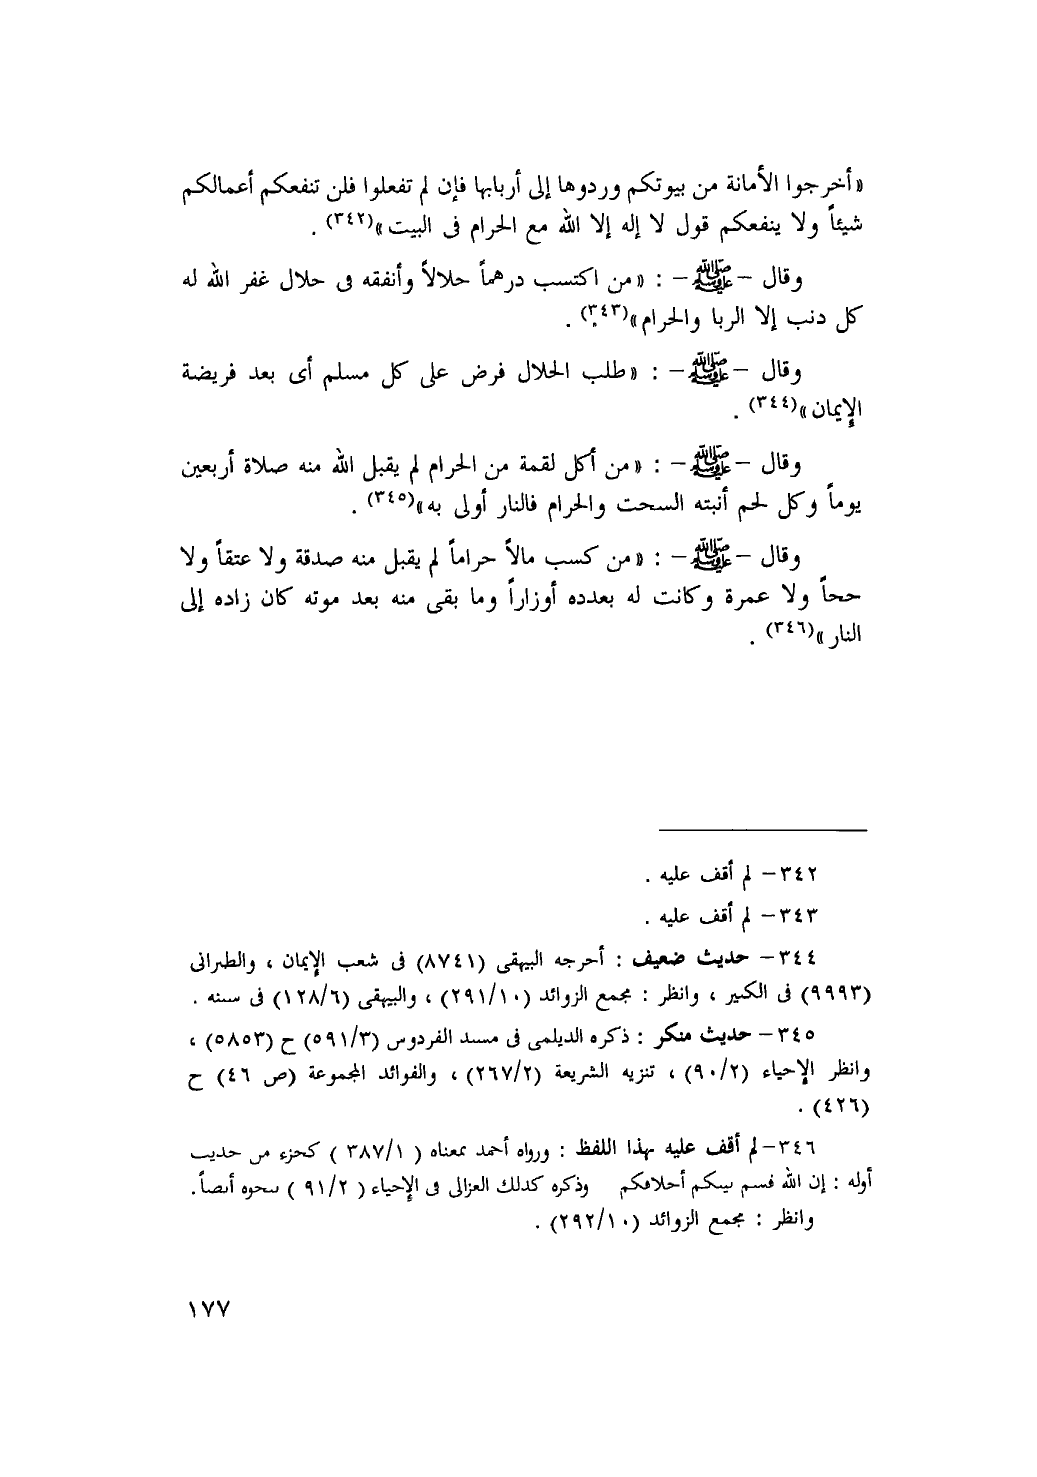 «أخرجوا الأمانة من بيوتكم وردوها إلى أربابها فإن لم تفعلوا فلن تنفعكم أعمالكم
شيئاً ولا ينفعكم قول لا إله إلا الله مع الحرام فى البيت»(٣٤٢) .
وقال –ﷺ– : «من اكتسب درهماً حلالاً وأنفقه فى حلال غفر الله له
كل دنب إلا الربا والحرام»(٣٤٣) .
وقال –ﷺ– : «طلب الحلال فرض على كل مسلم أى بعد فريضة
الإيمان»(٣٤٤) .
وقال –ﷺ– : «من أكل لقمة من الحرام لم يقبل الله منه صلاة أربعين
يوماً وكل لحم أنبته السحت والحرام فالنار أولى به»(٣٤٥) .
وقال –ﷺ– : «من كسب مالاً حراماً لم يقبل منه صدقة ولا عتقاً ولا
حجاً ولا عمرة وكانت له بعدده أوزاراً وما بقى منه بعد موته كان زاده إلى
النار»(٣٤٦) .
٣٤٢– لم أقف عليه .
٣٤٣– لم أقف عليه .
٣٤٤– حديث ضعيف : أحرجه البيهقى (٨٧٤١) فى شعب الإيمان ، والطبرانى
(٩٩٩٣) فى الكبير ، وانظر : مجمع الزوائد (٢٩١/١٠) ، والبيهقى (١٢٨/٦) فى سننه .
٣٤٥– حديث منكر : ذكره الديلمى فى مسند الفردوس (٥٩١/٣) ح (٥٨٥٣) ،
وانظر الإحياء (٩٠/٢) ، تنزيه الشريعة (٢٦٧/٢) ، والفوائد المجموعة (ص ٤٦) ح
(٤٢٦) .
٣٤٦–لم أقف عليه بهذا اللفظ : ورواه أحمد بمعناه ( ٣٨٧/١ ) كجزء من حديث
أوله : إن الله قسم بينكم أخلاقكم وذكره كذلك الغزالى فى الإحياء ( ٩١/٢ ) بنحوه أيضاً.
وانظر : مجمع الزوائد (٢٩٢/١٠) .
١٧٧